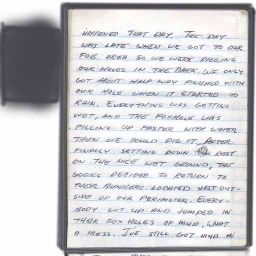 HAPPENED THAT DAY. THE DAY
WAS LATE WHEN WE GOT TO OUR
FOB AREA SO WE WERE DIGGING
OUR HOLES IN THE DARK. WE ONLY
GOT ABOUT HALF WAY FINISHED WITH
OUR HOLE WHEN IT STARTED TO
RAIN. EVERYTHING WAS GETTING
WET, AND THE FOXHOLE WAS
FILLING UP FASTER WITH WATER
THEN WE COULD DIG IT. AFTER
FINALLY SETTING DOWN TO REST
ON THE NICE WET GROUND, THE
GOOKS DECIDED TO RETURN TO
THEIR BUNKERS LOCATED JUST OUT-
SIDE OF OUR PERIMETER. EVERY-
BODY GOT UP AND JUMPED IN
THEIR FOX HOLES OF MUD, WHAT
A MESS. I'VE STILL GOT MUD IN